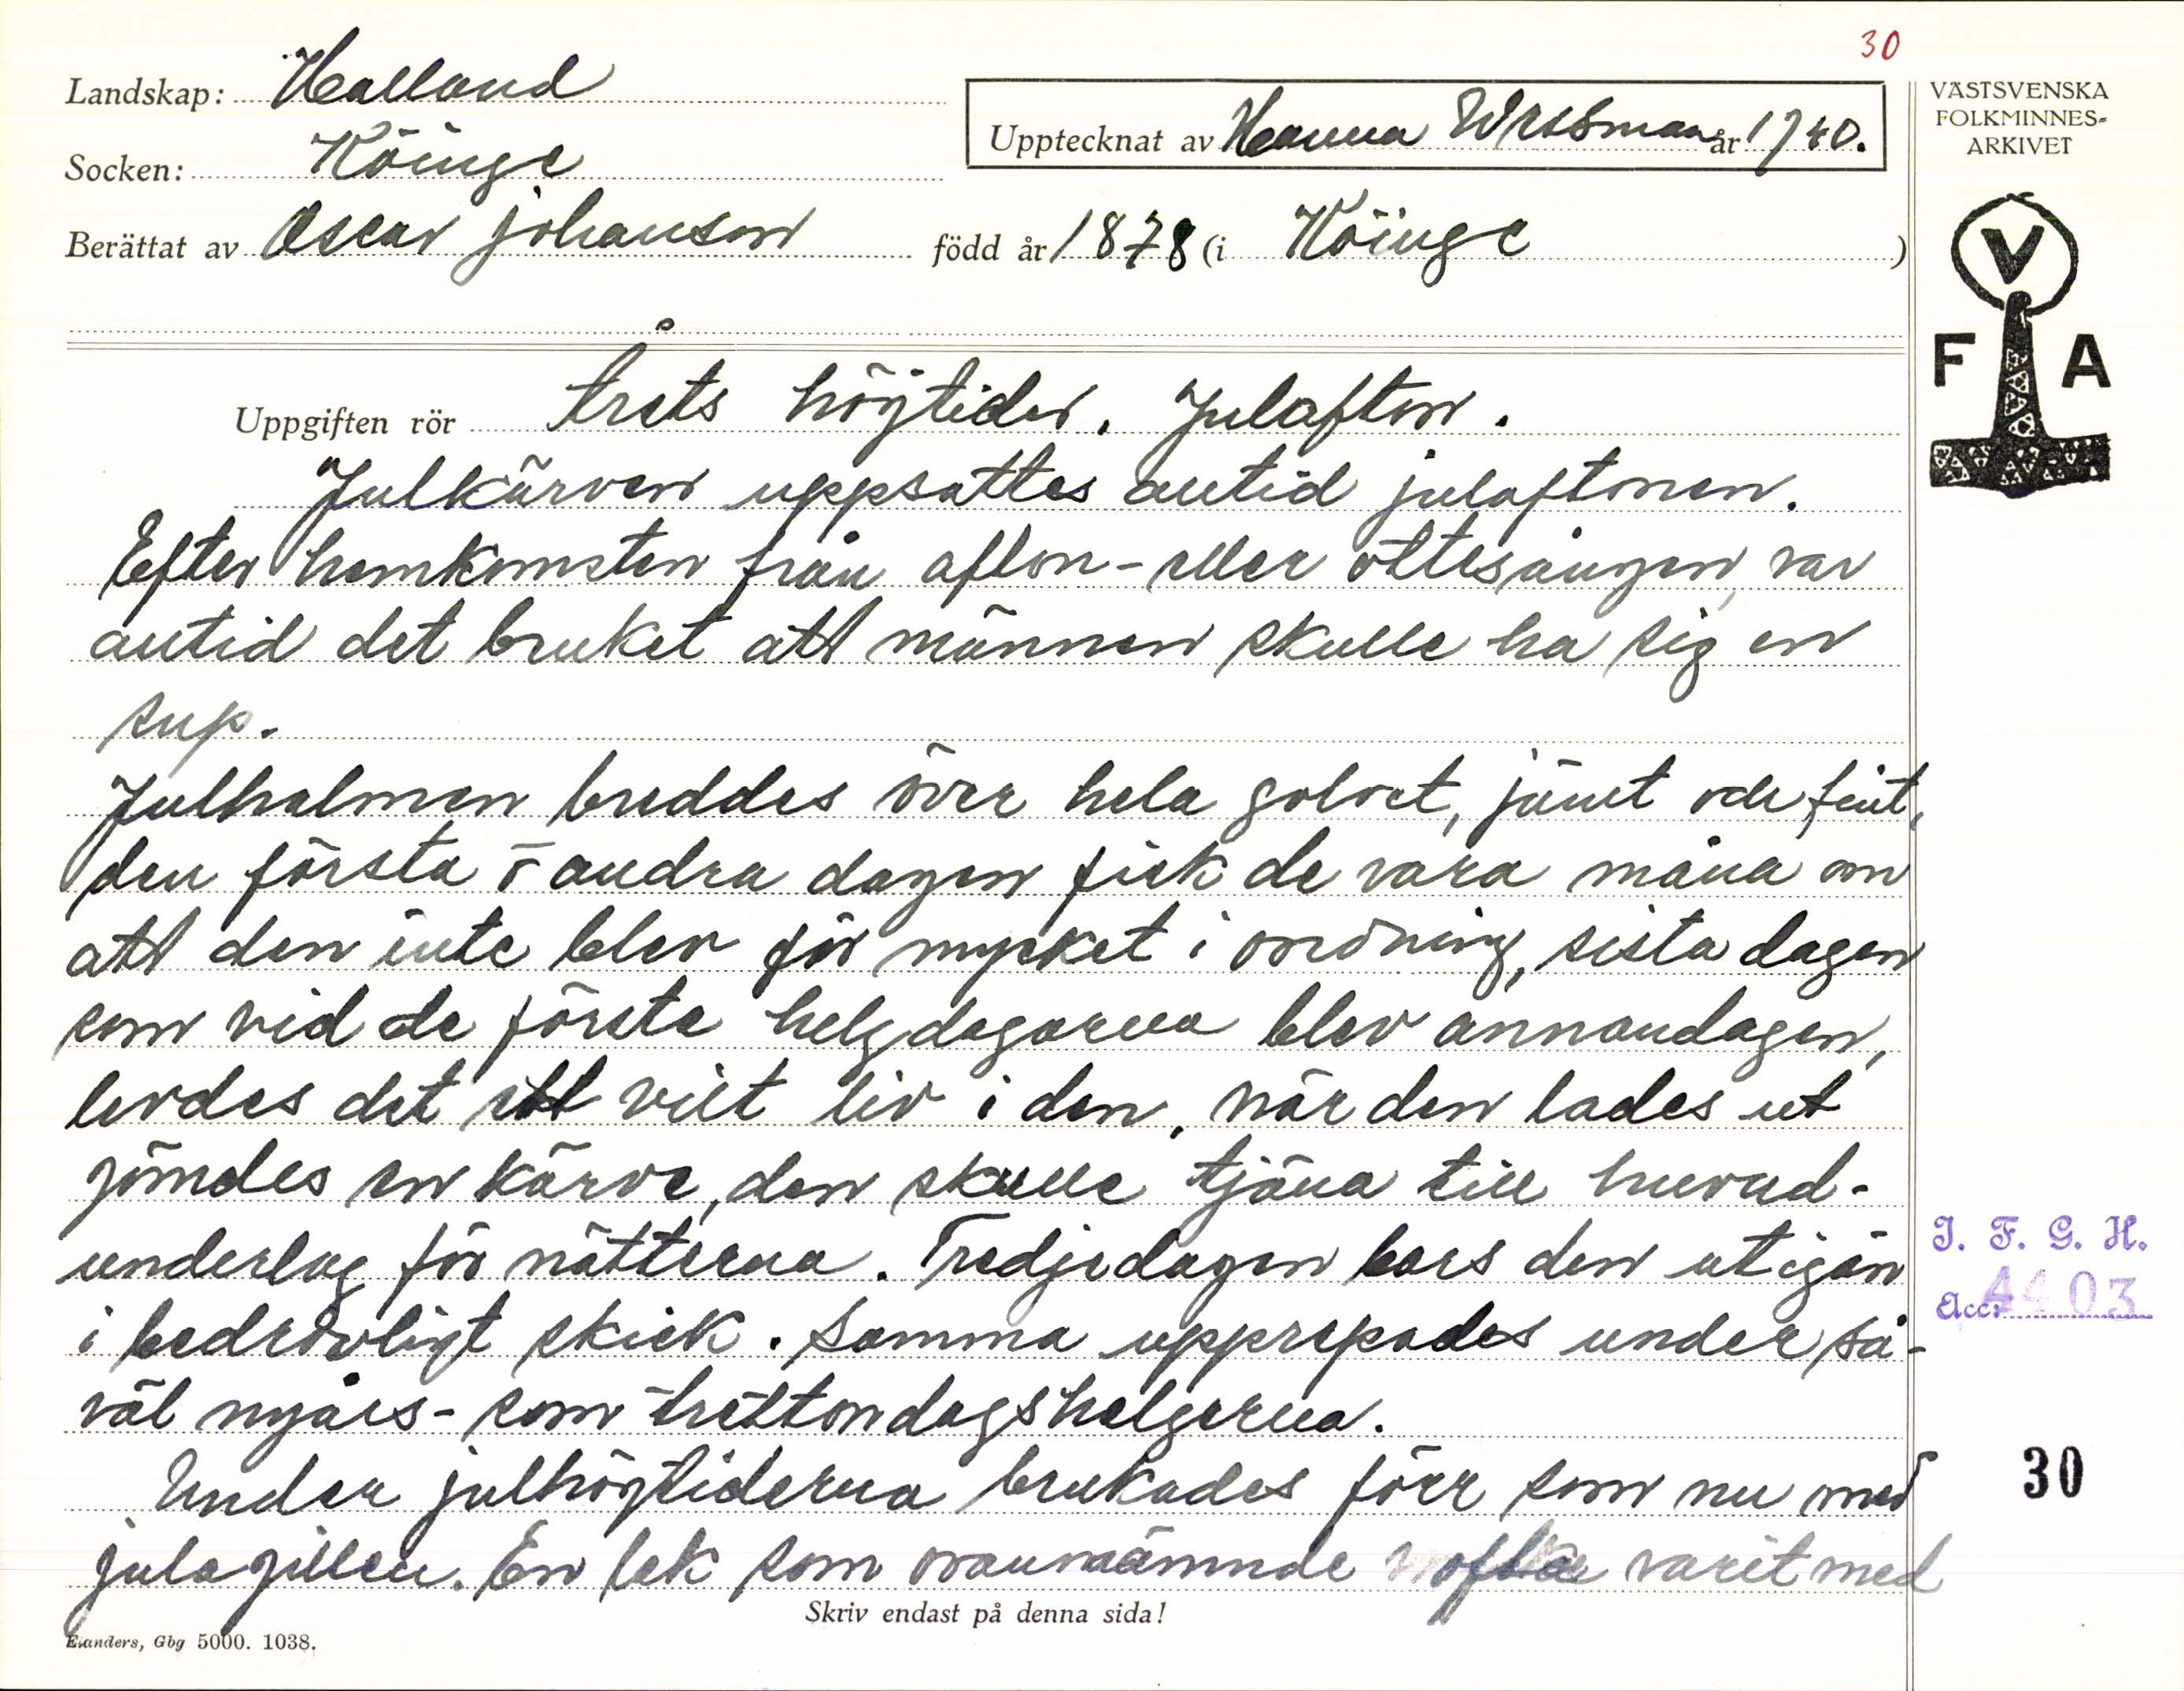 30
Landskap: Halland
Upptecknat av Hanna Wessman år 1940.
VÄSTSVENSKA
FOLKMINNES-
ARKIVET
Socken: Köinge
Berättat av Oscar Johanson född år 1878 (i Köinge )
V
F A
Uppgiften rör Årets högtider. Julafton.
Julkärven uppsattes alltid julaftonen.
Efter hemkomsten från afton- eller ottesången, var
alltid det bruket att männen skulle ha sig en
sup.
Julhalmen breddes över hela golvet, jämt och fint,
den första o andra dagen fick de vara måna om
att den inte blev för mycket i oordning, sista dagen
som vid de första helgdagarna blev annandagen,
levdes det ett vilt liv i den, när den lades ut
gömdes en kärve, den skulle tjäna till huvud-
underlag för nätterna. Tredjedagen bars den ut igän
i bedrövligt skick. Samma upprepades under så-
väl nyårs- som trettondagshelgerna.
Under julhögtiderna brukades förr som nu med
julagillen. En lek som ovannämnde ofta varit med
J. F. G. H.
Acc: 4403
30
Skriv endast på denna sida!
Elanders, Gbg 5000. 1038.